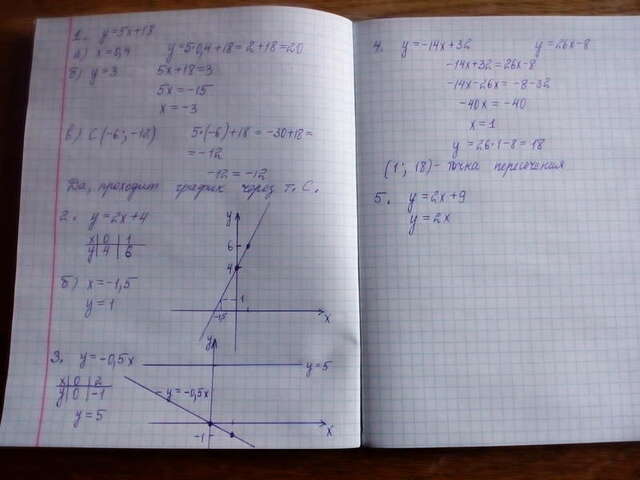 1. y=5x+18
а) x=0,4 y=5·0,4+18=2+18=20
б) y=3 5x+18=3
5x=-15
x=-3
в) С(-6; -12) 5·(-6)+18=-30+18=
=-12
-12=-12
Да, проходит график через т. С.
2. y=2x+4
x 0 1
y 4 6
б) x=-1,5
y=1
y
6
4
1
-1,5
x
3. y=-0,5x
x 0 2
y 0 -1
y=5
y
y=5
y=-0,5x
-1
x
4. y=-14x+32 y=26x-8
-14x+32=26x-8
-14x-26x=-8-32
-40x=-40
x=1
y=26·1-8=18
(1; 18)- точка пересечения
5. y=2x+9
y=2x